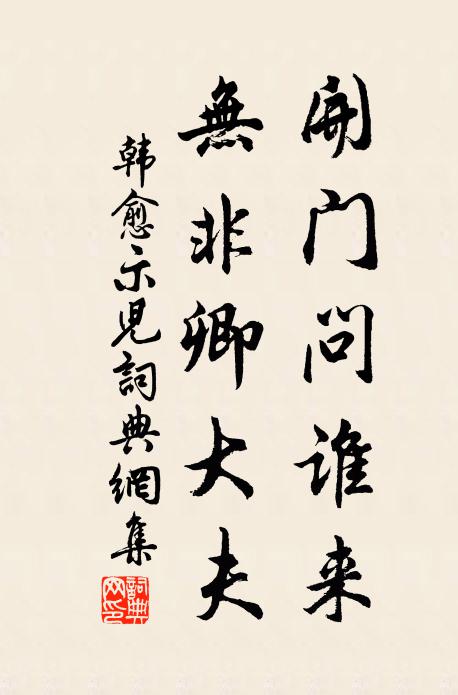 開门问谁来
無非卿大夫
韩愈示児詞典網集
詞典网印